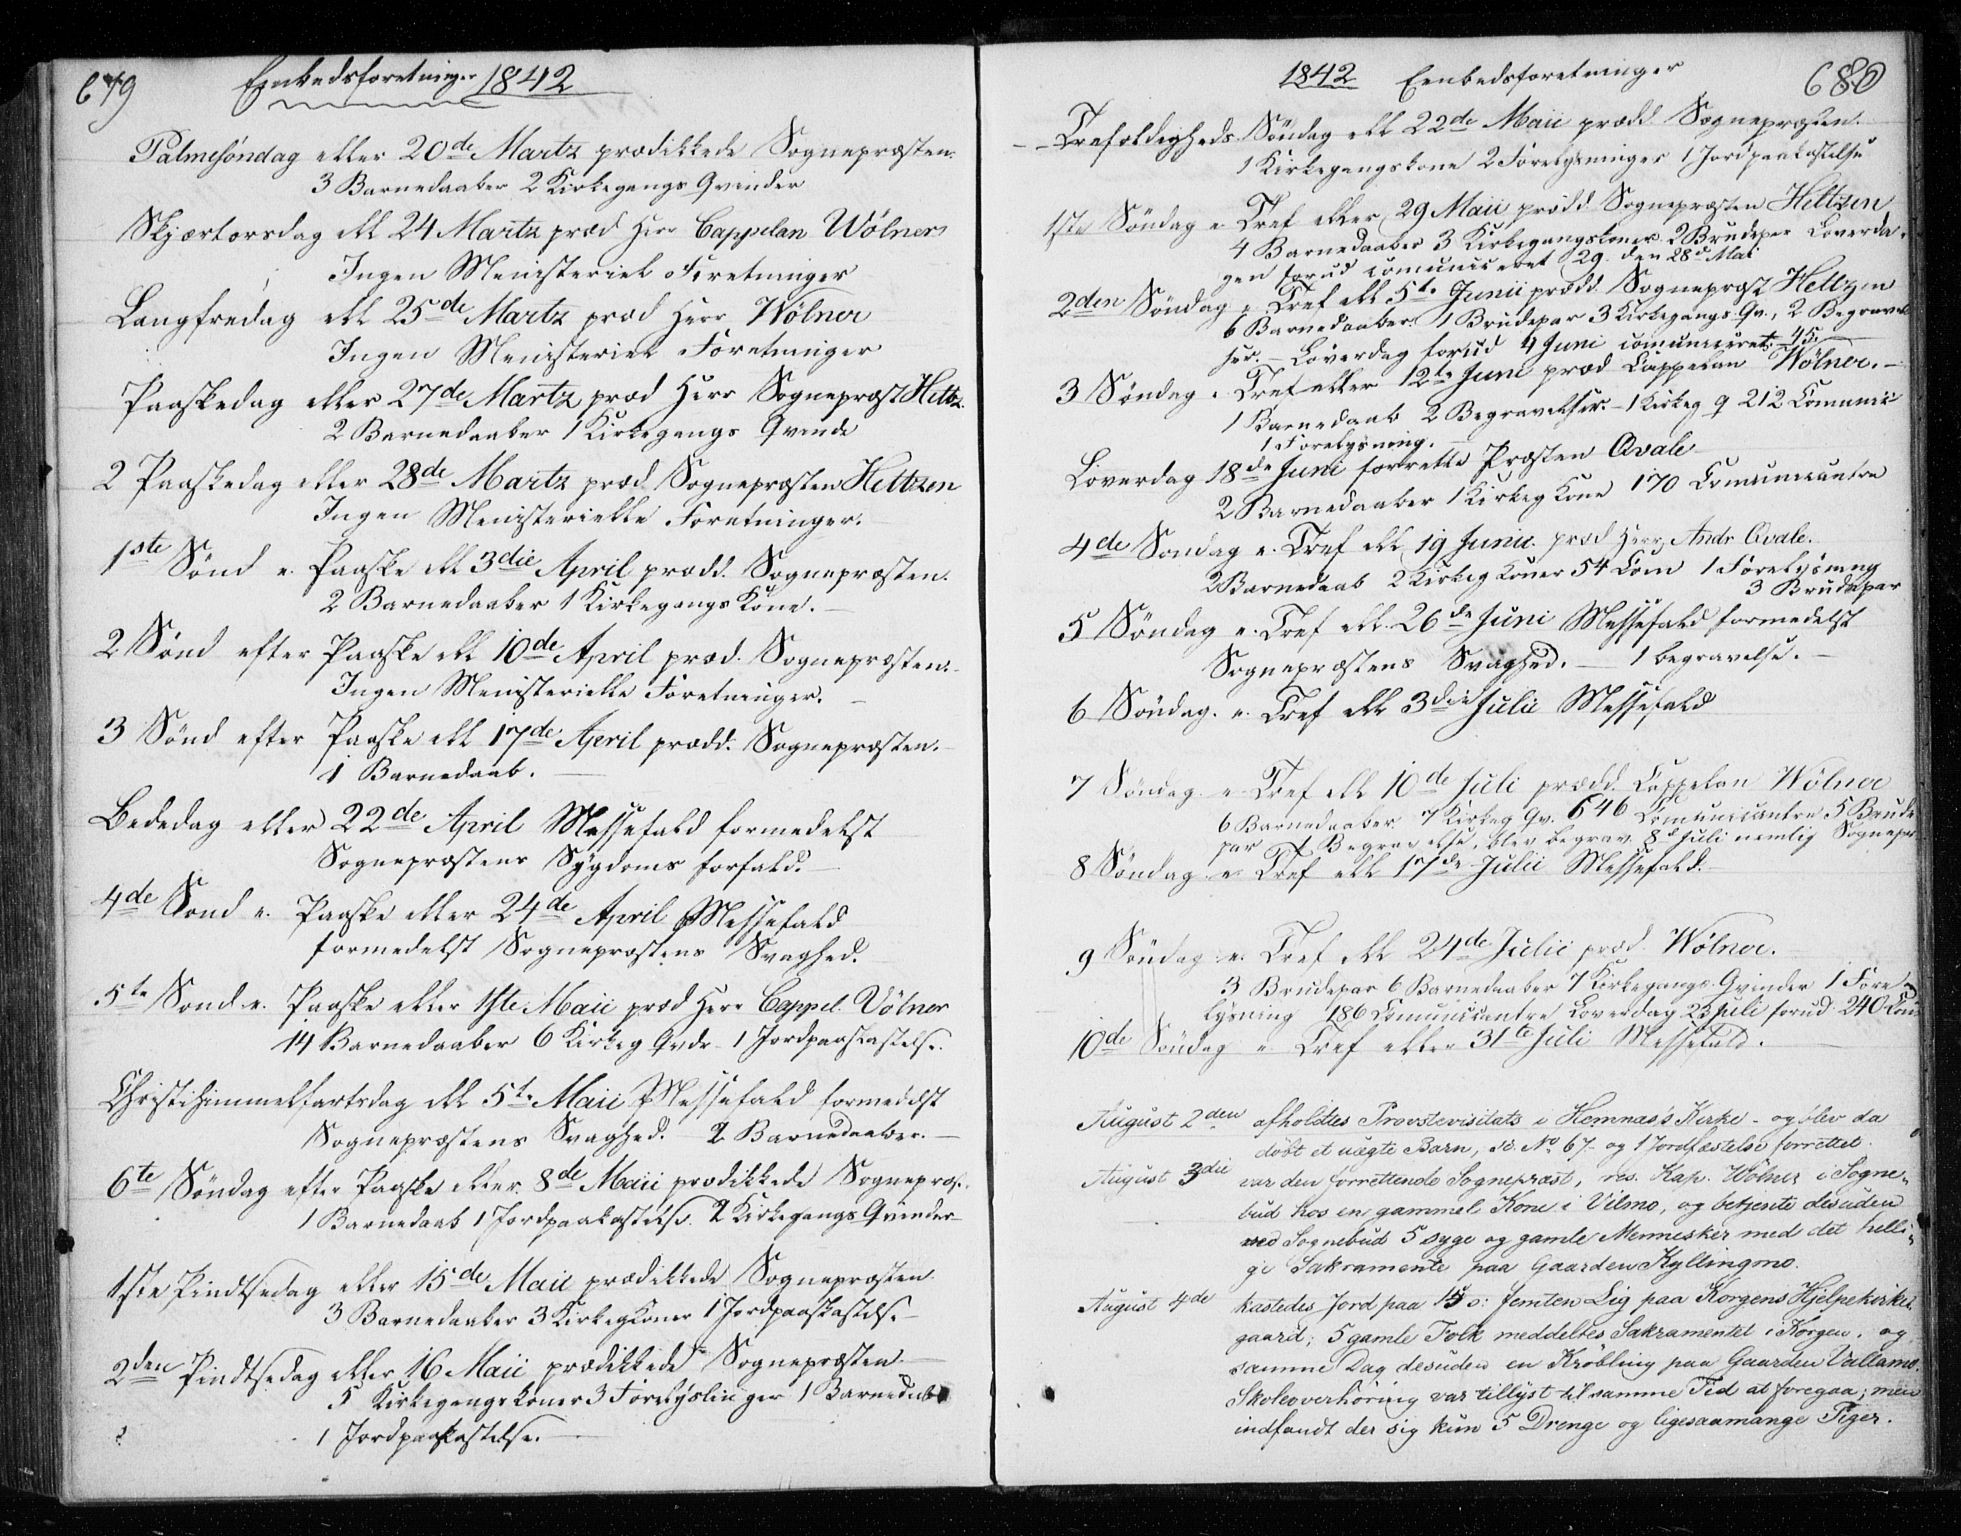 679
Embedsforetninger 1842
Palmesöndag eller 20de Martz prædikkede Sognepræsten.
3 Barnedaaber 2 Kirkegangs Qvinder
Skjærtorsdag ell 24 Martz præd Herr Cappelan Wölner
Ingen Ministeriel Foretninger
Langfredag ell 25de Martz præd Herr Wölner
Ingen Ministeriel Foretninger
Paaskedag eller 27de Martz præd Herr Sognepræst Heltz.
2 Barnedaaber 1 Kirkegangs Qvinde
2 Paaskedag eller 28de Martz præd Sognepræsten Heltzen
Ingen Ministerielle Foretninger.
1ste Sönd e. Paaske ell 3die April prædd. Sognepræsten.
2 Barnedaaber 1 Kirkegangs Kone.
2 Sönd efter Paaske ell 10de April præd. Sognepræsten.
Ingen Ministerielle Foretninger.
3 Sönd efter Paaske ell 17de April prædd. Sognepræsten.
1 Barnedaab.
Bededag eller 22de April Messefald formedelst
Sognepræstens Sygdoms forfald.
4de Sönd e. Paaske eller 24de April Messefald
formedelst Sognepræstens Svaghed.
5te Sönd e. Paaske eller 1ste Maii præd Herr Cappel. Völner
14 Barnedaaber 6 Kirkeg Qvdr 1 Jordpaakastelse.
Christihimmelfartsdag ell 5te Maii Messefald formedelst
Sognepræstens Svaghed. 2 Barnedaaber.
6te Söndag efter Paaske eller 8de Maii prædikkede Sognepræs.
1 Barnedaab 1 Jordpaakastelse. 2 Kirkegangs Qvinder
1ste Pindtsedag eller 15de Maii prædikkede Sognepræsten
3 Barnedaaber 3 Kirkeg Koner 1 Jordpaakastelse
2den Pindtsedag eller 16 Maii prædikkede Sognepræsten.
5 Kirkegangskoner 3 Forelyslinger 1 Barnedaab
1 Jordpaakastelse.
1842 Eenbedsforetninger
680
Trefoldigheds Söndag ell 22de Maii prædd Sognepræsten.
1 Kirkegangskone 2 Forelysninger 1 Jordpaakastelse
1ste Söndag e. Tref eller 29 Maii prædd Sognepræsten Heltzen
4 Barnedaaber 3 Kirkegangskoner. 2 Brudepar Löverda-
gen forud comuniceret 29. den 28d Mai
2den Söndag e. Tref ell 5te Junii prædd Sognepræst Heltzen
6 Barnedaaber. 1 Brudepar 3 Kirkegangs Qv., 2 Begravel
ser. – Löverdag forud 4 Juni comuniceret. 45.
3 Söndag e. Tref eller 12te Juni præd Cappelan Wölner. –
1 Barnedaab 2 Begravelser. – 1 Kirkeg q 212 Communic
1 Forelysning.
Löverdag 18de Juni forrette Præsten Qvale
2 Barnedaaber 1 Kirkeg Kone 170 Comunicantre
4de Söndag e. Tref ell 19 Junii. præd Herr Andr Qvale.
2 Barnedaab 2 Kirkeg Koner 54 Com 1 Forelysning
3 Brudepar
5 Söndag e. Tref ell. 26de Juni Messefald formedelst
Sognepræstens Svaghed. – 1 begravelse. –
6 Söndag. e. Tref ell 3die Julii Messefald
7 Söndag e Tref ell 10de Juli prædd Cappelan Wölner
6 Barnedaaber 7 Kirkeg Qv. 646 Comunicantre 5 Brude
par 1 Begravelse, blev begrav. 8d Juli nemlig Sognepr
8 Söndag e Tref ell 17de Julii Messefald.
9 Söndag e. Tref ell 24de Julii præd. Wölner.
3 Brudepar 6 Barnedaaber 7 Kirkegangs Qvinder 1 Fore
lysning 186 Comunicantre Löverdag 23 Juli forud 240 Com
10de Söndag e Tref eller 31te Juli Messefald.
August 2den afholdtes Provstevisitats i Hemnæs's Kirke - og blev da
döbt et uægte Barn, sc. No 67 - og 1 Jordfæstelse forrettet.
August 3die var den forrettende Sognepræst, res. Kap. Wölner i Sogne-
bud hos en gammel Kone i Vilmo, og betjente desuden
ved Sognebud 5 syge og gamle Mennesker med det helli-
ge Sakramente paa Gaarden Kyllingmo.
August 4de kastedes Jord paa 15 o: femten Lig paa Korgens Hjelpekirke-
gaard; 5 gamle Folk meddeltes Sakramentet i Korgen, og
samme Dag desuden en Kröbling paa Gaarden Vallamo.
Skoleoverhöring var tillyst til samme Tid at foregaa; men
indfandt der sig kun 5 Drenge og ligesaamange Piger.